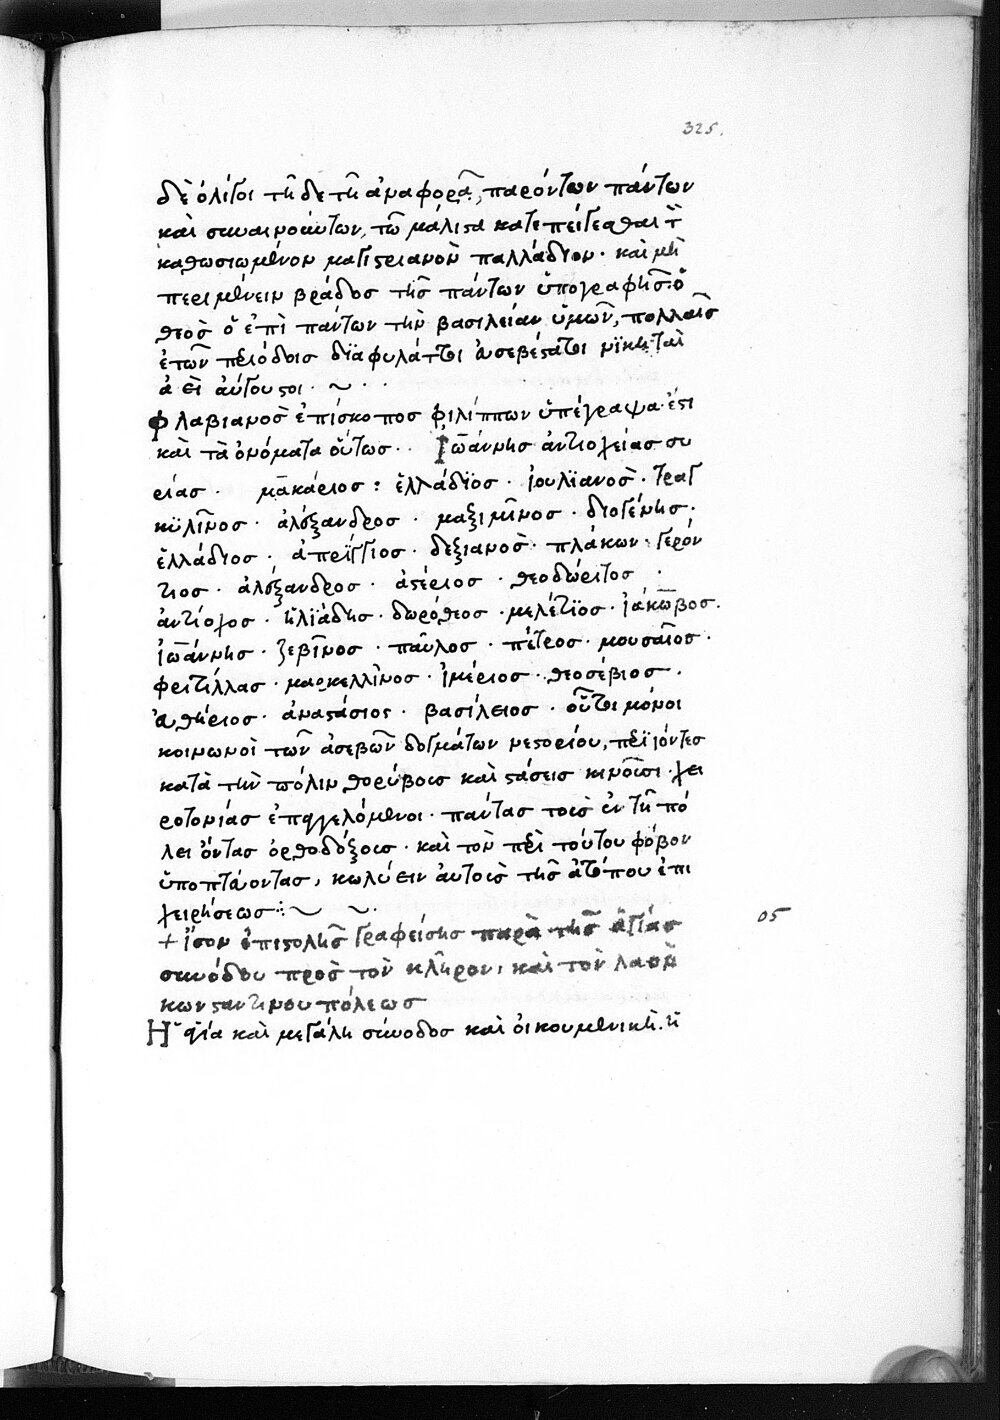 325.
δὲ ὀλίγοι τῆδε τῆ ἀναφορᾶ, παρόντων πάντων
καὶ συναινούντων, τῶ μάλιστα κατεπείγεσθαι τ
καθωσιωμένον μαγιστριανὸν παλλάδιον· καὶ μὴ
περιμένειν βράδος τῆς πάντων ὑπογραφῆς: ὁ
θεὸς ὁ ἐπὶ πάντων τὴν βασιλείαν ὑμῶν, πολλαῖς
ἐτῶν περιόδοις διαφυλάττοι εὐσεβέστατοι νϊκηταὶ
ἀεὶ αὔγουστοι· ~ · ·
φλαβιανὸς ἐπίσκοπος φιλίππων ὑπέγραψα· ἔστι
καὶ τὰ ὀνόματα οὕτως·· Ἰωάννης ἀντιοχείας συ
ρίας· μακάριος: ἑλλάδϊος· ἰουλϊανὸς· τραγ
κϋλῖνος· ἀλέξανδρος· μαξιμῖνος· διογένης·
ἑλλάδιος· ἀπρίγγιος· δεξιανὸς· πλάκων· γερόν
τιος· ἀλέξανδρος· ἀστέριος· θεοδώριτος·
ἀντίοχος· ἡλϊάδης· δωρόθεος· μελέτϊος· ἰάκωβος·
ἰωάννης· ζεβῖνος· παῦλος· πέτρος· μουσαῖος·
φριτίλλας· μαρκελλῖνος· ἱμέριος· θεοσέβιος·
αἰθήριος· ἀναστάσιος· βασίλειος· οὗτοι μόνοι
κοινωνοὶ τῶν ἀσεβῶν δογμάτων νεστορίου, περιϊόντες
κατὰ τὴν πόλιν, θορύβοις καὶ στάσεις κινοῦσι· χει
ροτονίας ἐπαγγελόμενοι· πάντας τοὺς ἐν τῆ πό
λει ὄντας ὀρθοδόξους· καὶ τὸν περὶ τούτου φόβον
ὑποπτεύοντας, κωλύειν αὐτοὺς τῆς ἀτόπου ἐπι
χειρήσεως:~ ~·
+ ἴσον ἐπιστολῆς γραφείσης παρὰ τῆς ἁγίας
συνόδου πρὸς τὸν κλῆρον, καὶ τὸν λαὸν
κωνσταντινουπόλεως
Ἡ ἁγία καὶ μεγάλη σύνοδος καὶ οἰκουμενικὴ. ἡ